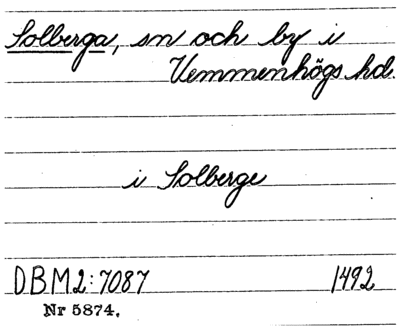 Solberga, sn och by i
Vemmenhögs hd.
i Solberge
DBM2:7087 1492
Nr 5874.